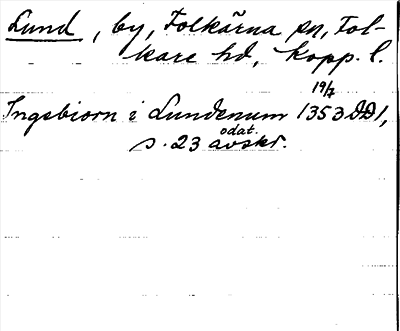 Lund, by, Folkärna sn, Fol-
kare hd, Kopp. l.
19/7
Ingsbiorn i Lundenum 1353 DD1,
odat.
s. 23 avskr.